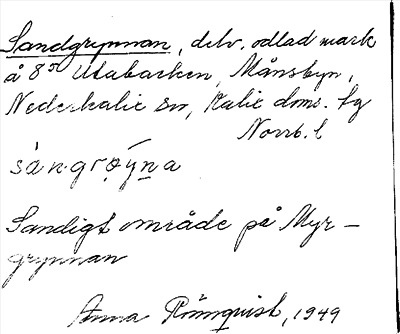 Sandgrynnan, delv. odlad mark
å 8⁵¹ Utabacken, Månsbyn,
Nederkalix sn, Kalix doms. tg
Norrb. l
Sandigt område på Myr-
grynnan
Anna Rönnqvist, 1949